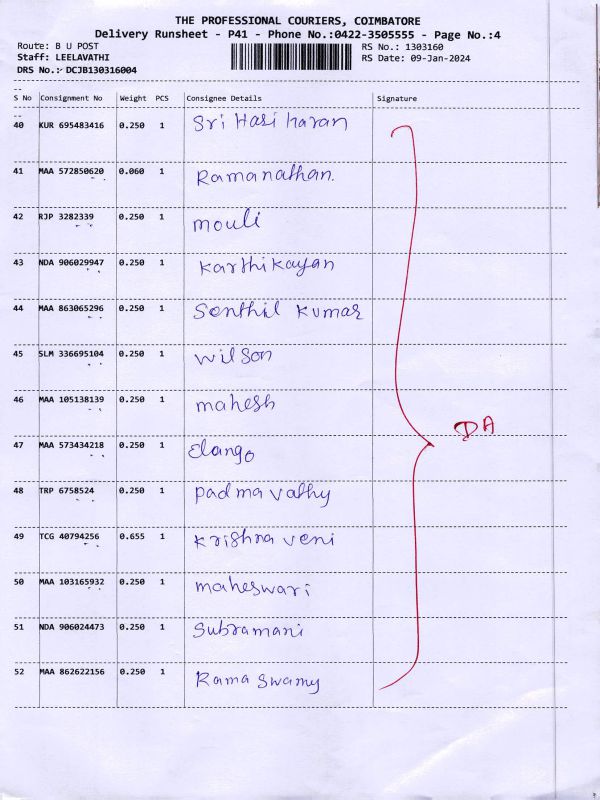 THE PROFESSIONAL COURIERS, COIMBATORE
Delivery Runsheet - P41 - Phone No.:0422-3505555 - Page No.:4
Route: B U POST RS No.: 1303160
Staff: LEELAVATHI RS Date: 09-Jan-2024
DRS No.:- DCJB130316004
S No Consignment No Weight PCS Consignee Details Signature
40 KUR 695483416 0.250 1 Sri Hari haran
41 MAA 572850620 0.060 1 Ramanathan.
42 RJP 3282339 0.250 1 mouli
43 NDA 906029947 0.250 1 Karthikayan
44 MAA 863065296 0.250 1 Senthil Kumar
45 SLM 336695104 0.250 1 Wilson
46 MAA 105138139 0.250 1 mahesh
47 MAA 573434218 0.250 1 Elango
DA
48 TRP 6758524 0.250 1 Padma vathy
49 TCG 40794256 0.655 1 Krishna veni
50 MAA 103165932 0.250 1 maheswari
51 NDA 906024473 0.250 1 Subramani
52 MAA 862622156 0.250 1 Rama Swamy